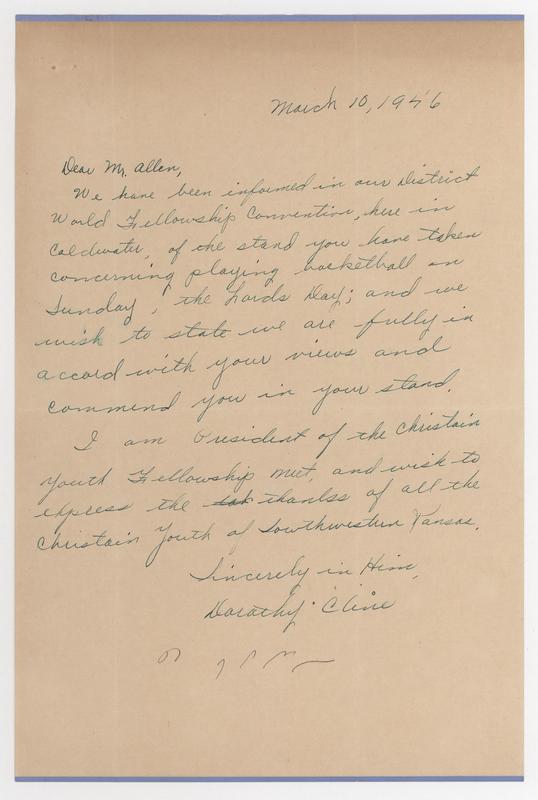 March 10, 1946
Dear Mr. Allen,
We have been informed in our District
World Fellowship Convention, here in
Coldwater, of the stand you have taken
concerning playing basketball on
Sunday, the Lords Day; and we
wish to state we are fully in
accord with your views and
commend you in your stand.
I am President of the Christain
Youth Fellowship meet, and wish to
express the thanks of all the
Christain Youth of Southwestern Kansas.
Sincerely in Him,
Dorathy Cline